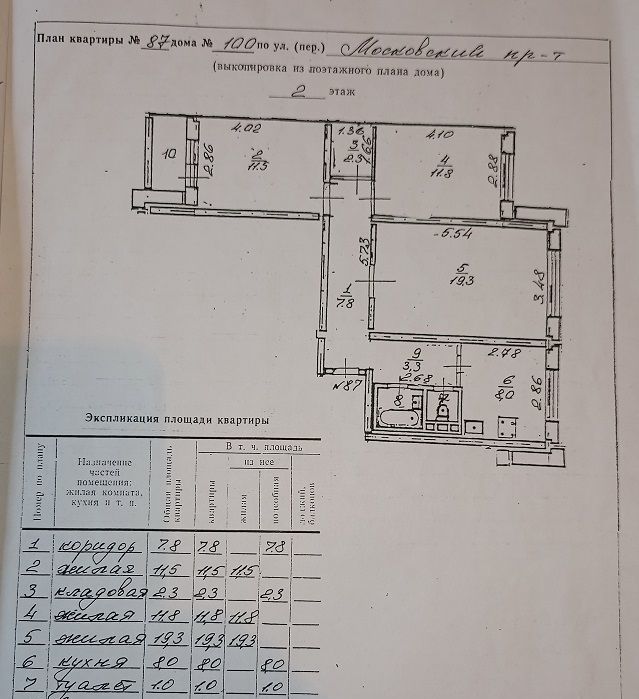 План квартиры № 87 дома № 100 по ул. (пер.) Московский пр-т
(выкопировка из поэтажного плана дома)
2 этаж
4.02
1.36
4.10
10
2.86
2
11.5
3
2.3
1.66
4
11.8
2.88
5.54
5.73
5
19.3
3.48
1
7.8
9
3,3
2.78
2.68
6
8,0
2.86
№87
8
7
Экспликация площади квартиры
Номер по плану
Назначение частей помещения: жилая комната, кухня и т. п.
Общая площадь квартиры
В т. ч. площадь
на нее
квартиры
жилая
подсобная
лоджий, балконов
1 коридор 7.8 7.8 7.8
2 жилая 11,5 11,5 11.5
3 кладовая 2.3 2.3 2,3
4 жилая 11.8 11,8 11.8
5 жилая 19,3 19,3 19.3
6 кухня 8.0 8.0 8.0
7 туалет 1.0 1.0 1.0